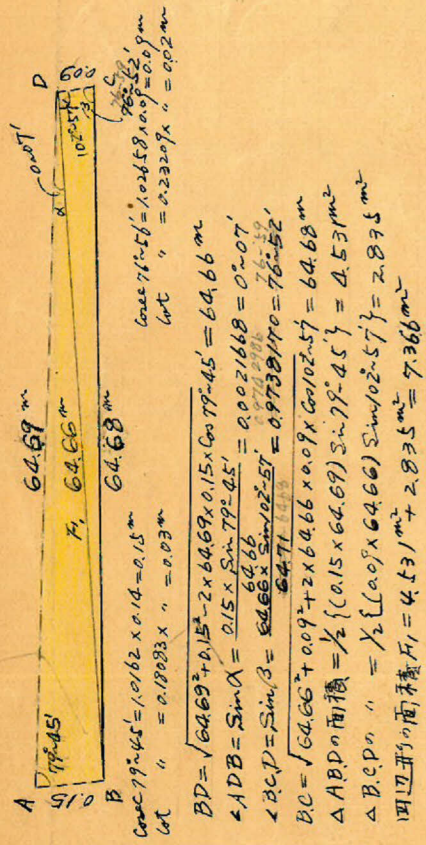 A 64.69ᵐ D
79°-45′ α 0°-07′
0.15 F₁ 64.66ᵐ 102°-57′ 0.09
B 64.68ᵐ β C
76°-59′
76°-52′
Cosec 79°-45′=1.0162×0.14=0.15ᵐ
Cot 〃 =0.18083× 〃 =0.03ᵐ
Cosec 76°-56′=1.02658×0.09=0.09ᵐ
Cot 〃 =0.23209× 〃 =0.02ᵐ
BD=√64.69²+0.15²-2×64.69×0.15×Cos79°-45′=64.66ᵐ
∠ADB=Sinα=0.15×Sin79°-45′/64.66=0.0021668=0°-07′
0.9742906 76-59
∠B.C.D=Sinβ=64.66×Sin102°-57′/64.71=0.9738170=76°-52′
64.68
B.C=√64.66²+0.09²+2×64.66×0.09×Cos102°-57′=64.68ᵐ
△ABDの面積=1/2{(0.15×64.69)Sin79°-45′}=4.531m²
△B.C.Dの 〃 =1/2{(0.09×64.66)Sin102°-57′}=2.835m²
四辺形の面積F₁=4.531m²+2.835m²=7.366m²